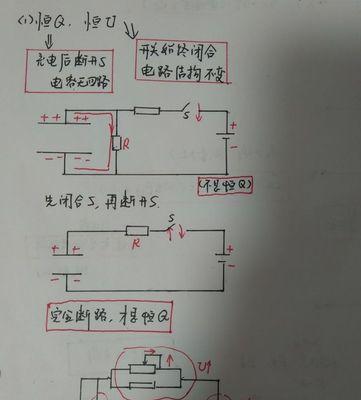 (1) 恒Q、恒U
充电后断开S
电容无回路
开关始终闭合
电路结构不变
++ ++
S
+
R
-
-- --
(不是恒Q)
先闭合S,再断开S.
S
R
+ +
+
- -
-
完全断路,才是恒Q
U↑